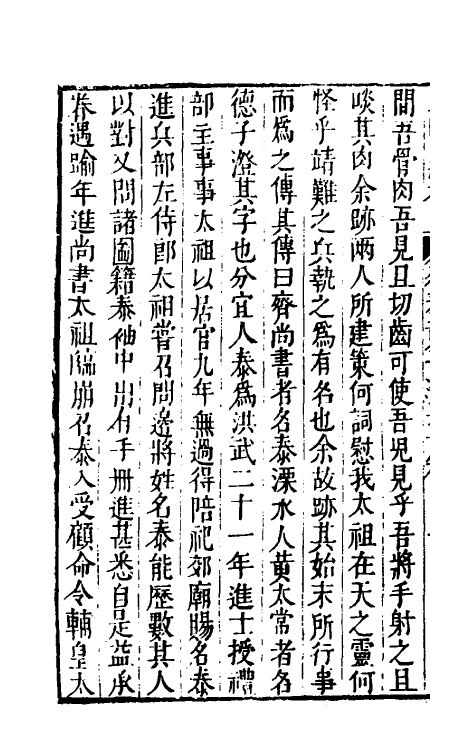 間吾骨肉吾見且切齒可使吾児見乎吾將手射之且
啖其肉余跡兩人所建策何詞慰我太祖在天之靈何
怪乎靖難之兵執之爲有名也余故跡其始末所行事
而爲之傳其傳曰齊尚書者名泰溧水人黄太常者名
德子澄其字也分宜人泰爲洪武二十一年進士授禮
部主事事太祖以居官九年無過得陪祀郊廟賜名泰
進兵部左侍郎太祖嘗召問邊將姓名泰能歷數其人
以對又問諸圖籍泰袖中出有手冊進甚悉自是益承
眷遇踰年進尚書太祖臨崩召泰入受顧命令輔皇太